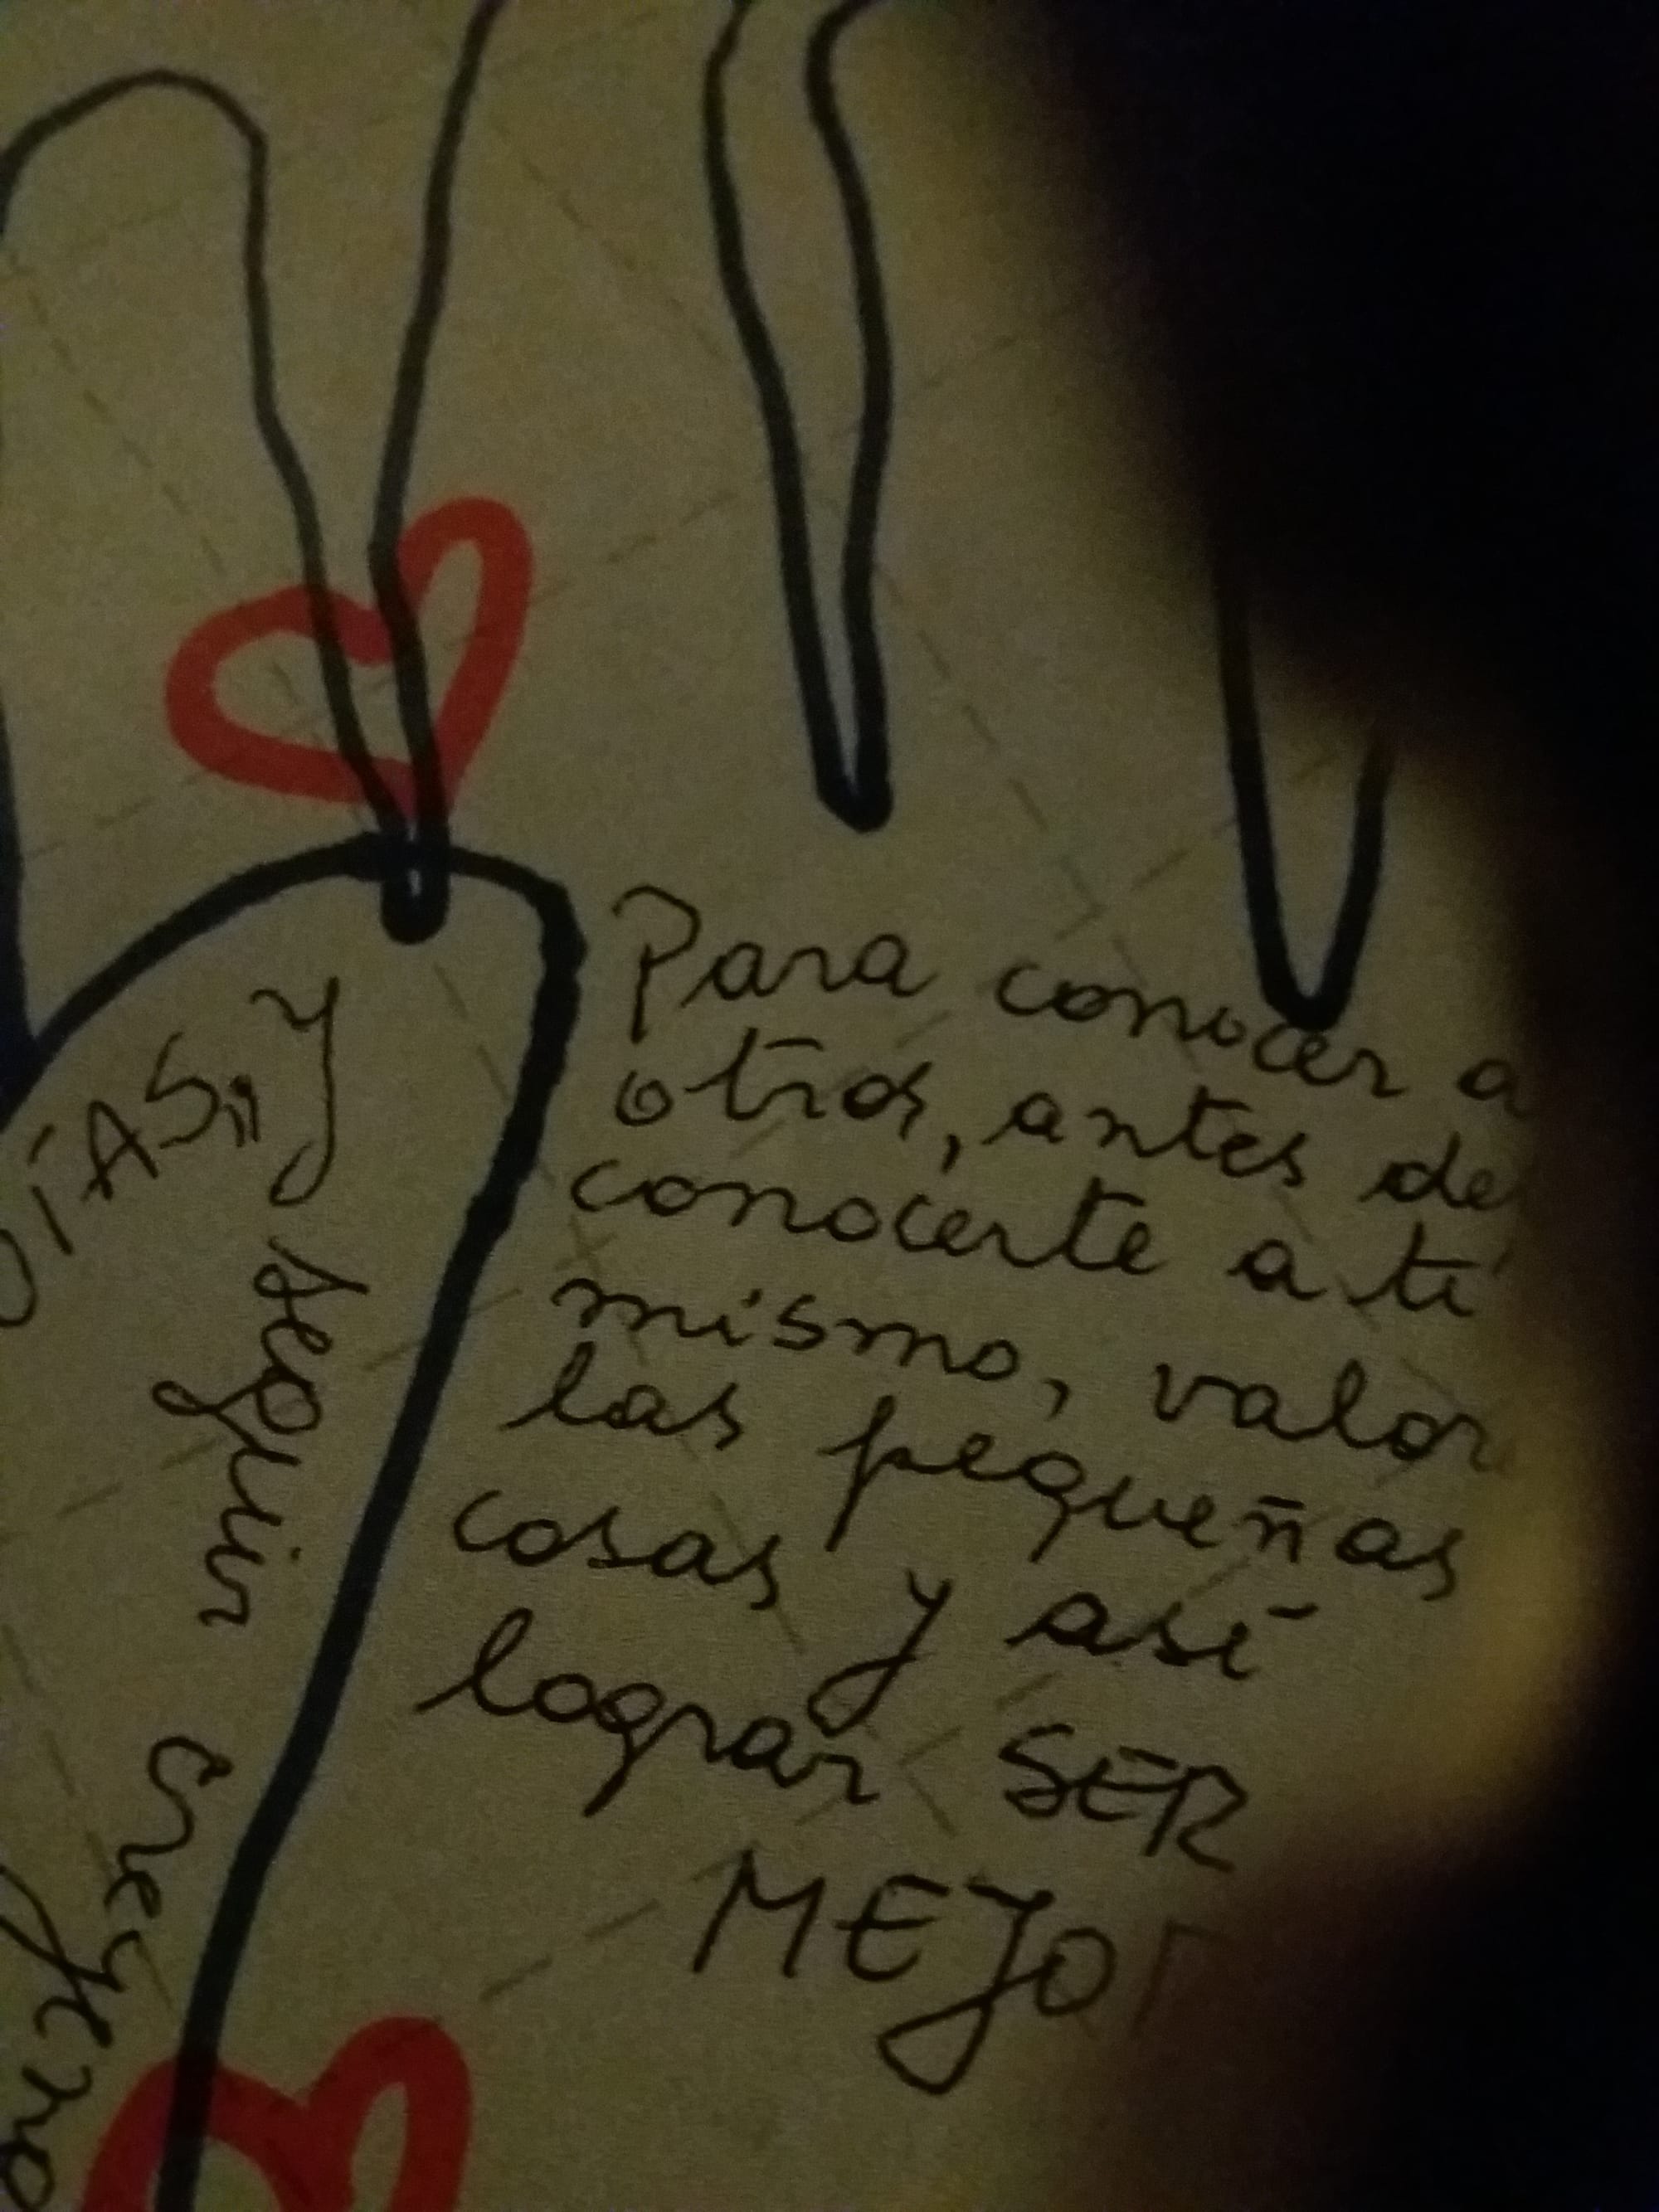 Para conocer a
otros, antes de
conocerte a ti
mismo, valor
las pequeñas
cosas y así
lograr SER
MEJOR
DÍAS,, y
seguir